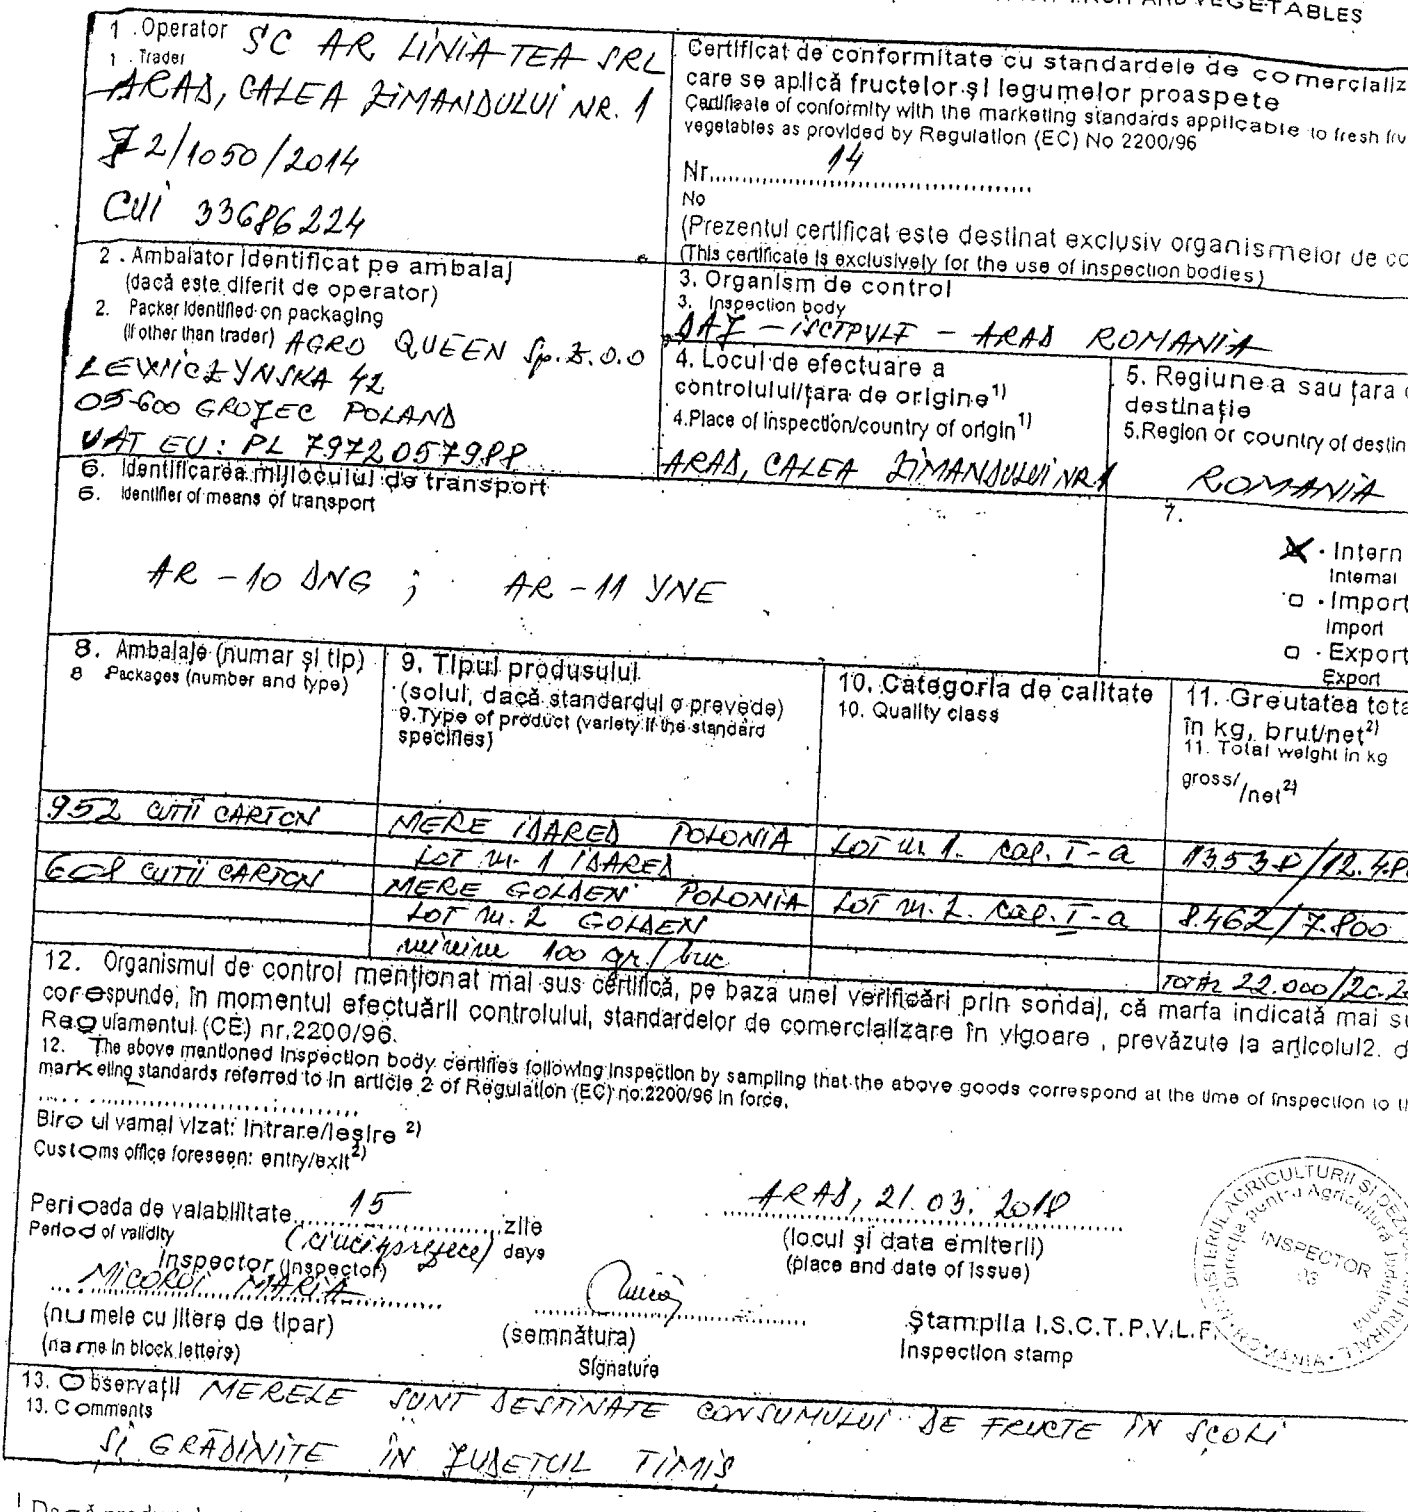 VEGETABLES
1. Operator SC AR LINIA TEA SRL
1. Trader
ARAD, CALEA ZIMANDULUI NR. 1
J2/1050/2014
CUI 33686224
Certificat de conformitate cu standardele de comercializ
care se aplică fructelor şi legumelor proaspete
Certificate of conformity with the marketing standards applicable to fresh fru
vegetables as provided by Regulation (EC) No 2200/96
Nr. 14
No
(Prezentul certificat este destinat exclusiv organismelor de co
(This certificate is exclusively for the use of inspection bodies)
2. Ambalator identificat pe ambalaj
(dacă este diferit de operator)
2. Packer identified on packaging
(if other than trader) AGRO QUEEN Sp. Z.O.O
05-600 GROJEC POLAND
VAT EU: PL 7972057988
3. Organism de control
3. Inspection body
DAJ - ISCTPVLF - ARAD ROMANIA
4. Locul de efectuare a
controlului/ţara de origine 1)
4. Place of inspection/country of origin 1)
ARAD, CALEA ZIMANDULUI NR.1
5. Regiunea sau ţara d
destinaţie
5. Region or country of destin
ROMANIA
6. Identificarea mijlocului de transport
6. Identifier of means of transport
AR - 10 DNG ; AR - 11 YNE
7.
Intern
Internal
Import
Import
Export
Export
8. Ambalaje (numar şi tip)
8 Packages (number and type)
9. Tipul produsului
(solul, dacă standardul o prevede)
9. Type of product (variety if the standard
specifies)
10. Categoria de calitate
10. Quality class
11. Greutatea tota
în kg, brut/net 2)
11. Total weight in kg
gross/ /net 2)
952 CUTII CARTON MERE IDARED POLONIA LOT nr. 1. cal. I-a 13.538/12.48
LOT nr. 1 IDARED
608 CUTII CARTON MERE GOLDEN POLONIA LOT nr. 2. cal. I-a 8.462/7.800
LOT nr. 2 GOLDEN
minim 100 gr./buc
TOTAL 22.000/20.2
12. Organismul de control menţionat mai sus certifică, pe baza unei verificări prin sondaj, că marfa indicată mai su
corespunde, în momentul efectuării controlului, standardelor de comercializare în vigoare , prevăzute la articolul2. d
Regulamentul (CE) nr.2200/96.
12. The above mentioned inspection body certifies following inspection by sampling that the above goods correspond at the time of inspection to th
marketing standards referred to in article 2 of Regulation (EC) no.2200/96 in force.
Biroul vamal vizat: intrare/ieşire 2)
Customs office foreseen: entry/exit 2)
Perioada de valabilitate 15 zile
Period of validity (cincisprezece) days
ARAD, 21.03.2018
(locul şi data emiterii)
(place and date of issue)
Inspector (inspector)
MICOROI MARIA
(numele cu litere de tipar)
(name in block letters)
(semnătura)
Signature
Ştampila I.S.C.T.P.V.L.F.
Inspection stamp
INSPECTOR
03
ROMANIA
13. Observaţii MERELE SUNT DESTINATE CONSUMULUI DE FRUCTE ÎN ŞCOLI
13. Comments
ŞI GRĂDINIŢE ÎN JUDEŢUL TIMIŞ